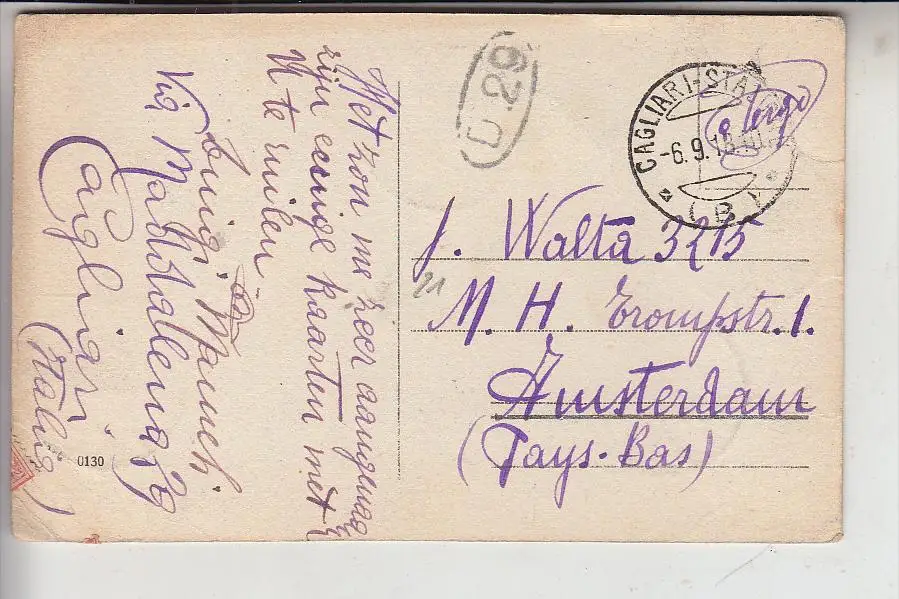 Het zou me zeer aangenaam
zijn eenige kaarten met
U te ruilen
Luigi
Via Maddalena 39
Cagliari
(Italië)
0130
D 29
CAGLIARI-STAZ
-6.9.18
(B)
a tergo
J. Walta 3215
21
M. H. Trompstr. 1.
Amsterdam
(Pays-Bas)